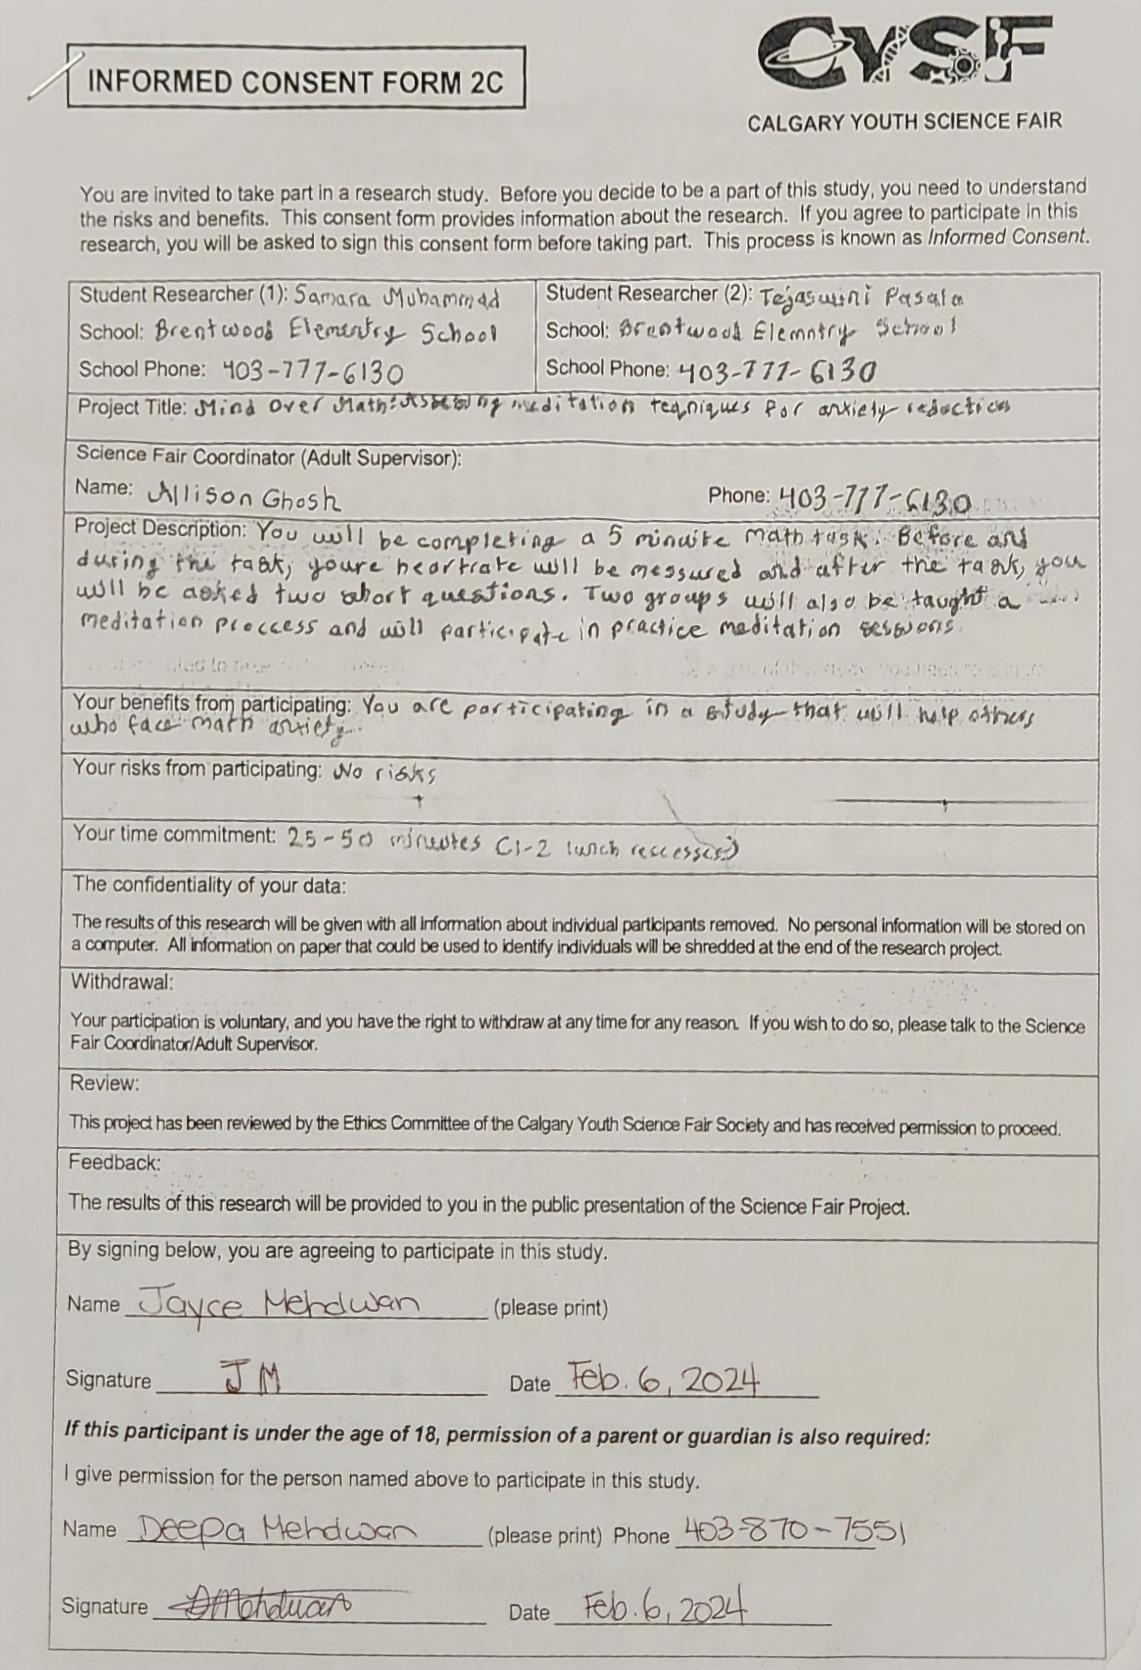 INFORMED CONSENT FORM 2C
CYSF
CALGARY YOUTH SCIENCE FAIR
You are invited to take part in a research study. Before you decide to be a part of this study, you need to understand
the risks and benefits. This consent form provides information about the research. If you agree to participate in this
research, you will be asked to sign this consent form before taking part. This process is known as Informed Consent.
Student Researcher (1): Samara Muhammad
School: Brentwood Elementry School
School Phone: 403-777-6130
Student Researcher (2): Tejaswini Pasala
School: Brentwood Elemntry School
School Phone: 403-777-6130
Project Title: Mind Over Math: Assessing meditation teqniques for anxiety reduction
Science Fair Coordinator (Adult Supervisor):
Name: Allison Ghosh Phone: 403-777-6130
Project Description: You will be completing a 5 minuite math task. Before and
during the task, youre heartrate will be messured and after the task, you
will be asked two short questions. Two groups will also be taught a
meditation proccess and will participate in practice meditation sessions.
Your benefits from participating: You are participating in a study that will help others
who face math anxiety.
Your risks from participating: No risks
Your time commitment: 25-50 minuutes (1-2 lunch rescesses)
The confidentiality of your data:
The results of this research will be given with all information about individual participants removed. No personal information will be stored on
a computer. All information on paper that could be used to identify individuals will be shredded at the end of the research project.
Withdrawal:
Your participation is voluntary, and you have the right to withdraw at any time for any reason. If you wish to do so, please talk to the Science
Fair Coordinator/Adult Supervisor.
Review:
This project has been reviewed by the Ethics Committee of the Calgary Youth Science Fair Society and has received permission to proceed.
Feedback:
The results of this research will be provided to you in the public presentation of the Science Fair Project.
By signing below, you are agreeing to participate in this study.
Name Jayce Mehdwan (please print)
Signature JM Date Feb. 6, 2024
If this participant is under the age of 18, permission of a parent or guardian is also required:
I give permission for the person named above to participate in this study.
Name Deepa Mehdwan (please print) Phone 403-870-7551
Signature DMehdwan Date Feb. 6, 2024